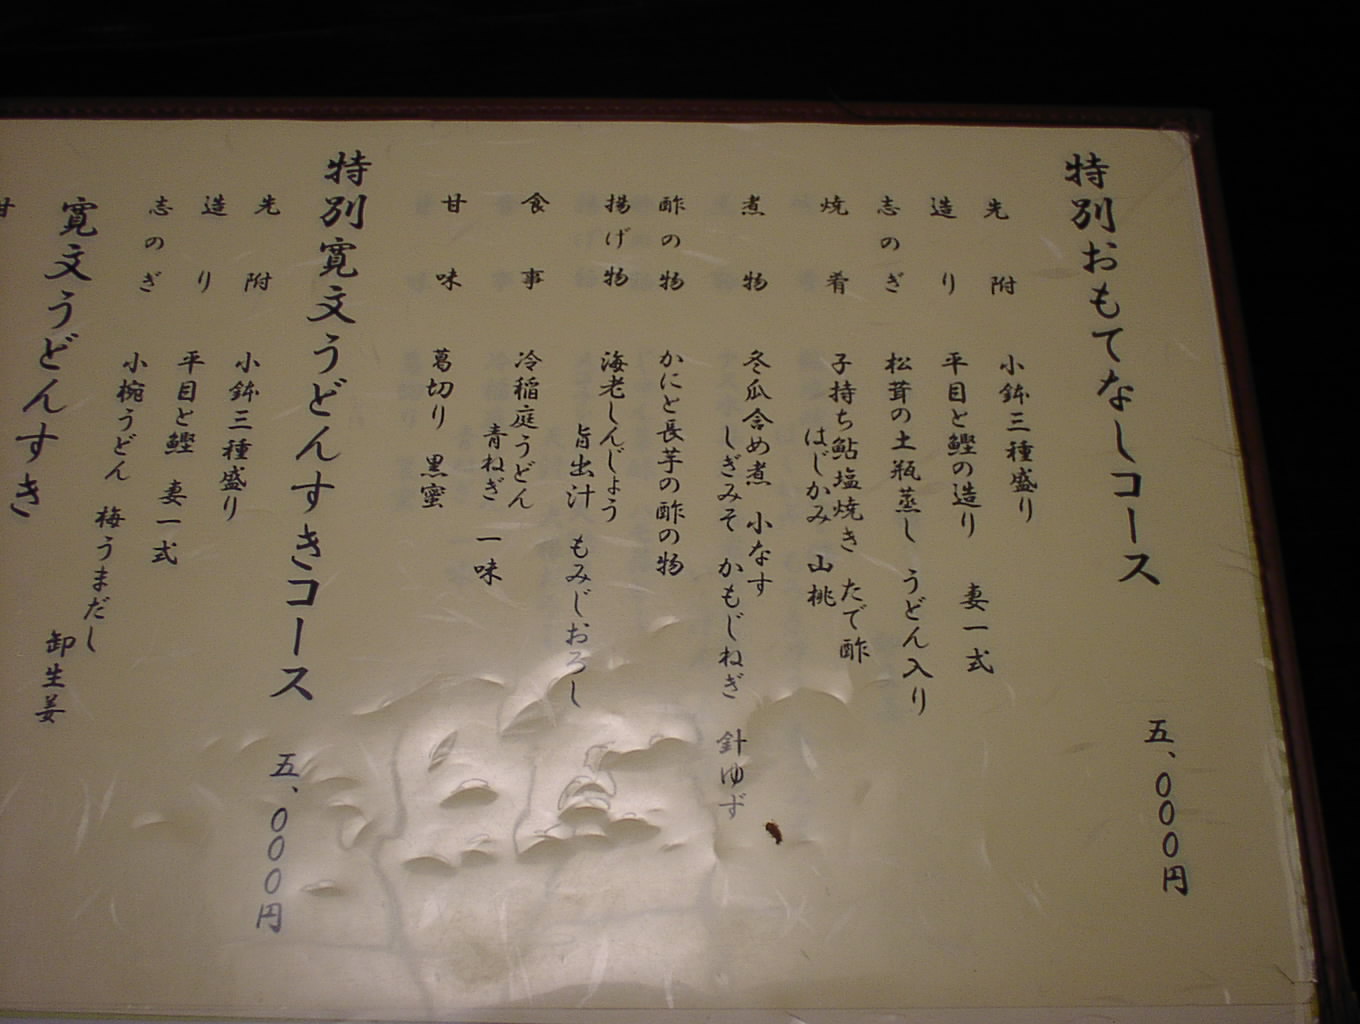 特別おもてなしコース 五、000円
先附 小鉢三種盛り
造り 平目と鰹の造り 妻一式
志のぎ 松茸の土瓶蒸し うどん入り
焼肴 子持ち鮎塩焼き たで酢
はじかみ 山桃
煮物 冬瓜含め煮 小なす
しぎみそ かもじねぎ 針ゆず
酢の物 かにと長芋の酢の物
揚げ物 海老しんじょう
旨出汁 もみじおろし
食事 冷稲庭うどん
青ねぎ 一味
甘味 葛切り 黒蜜
特別寛文うどんすきコース 五、000円
先附 小鉢三種盛り
造り 平目と鰹 妻一式
志のぎ 小椀うどん 梅うまだし
卸生姜
寛文うどんすき
甘